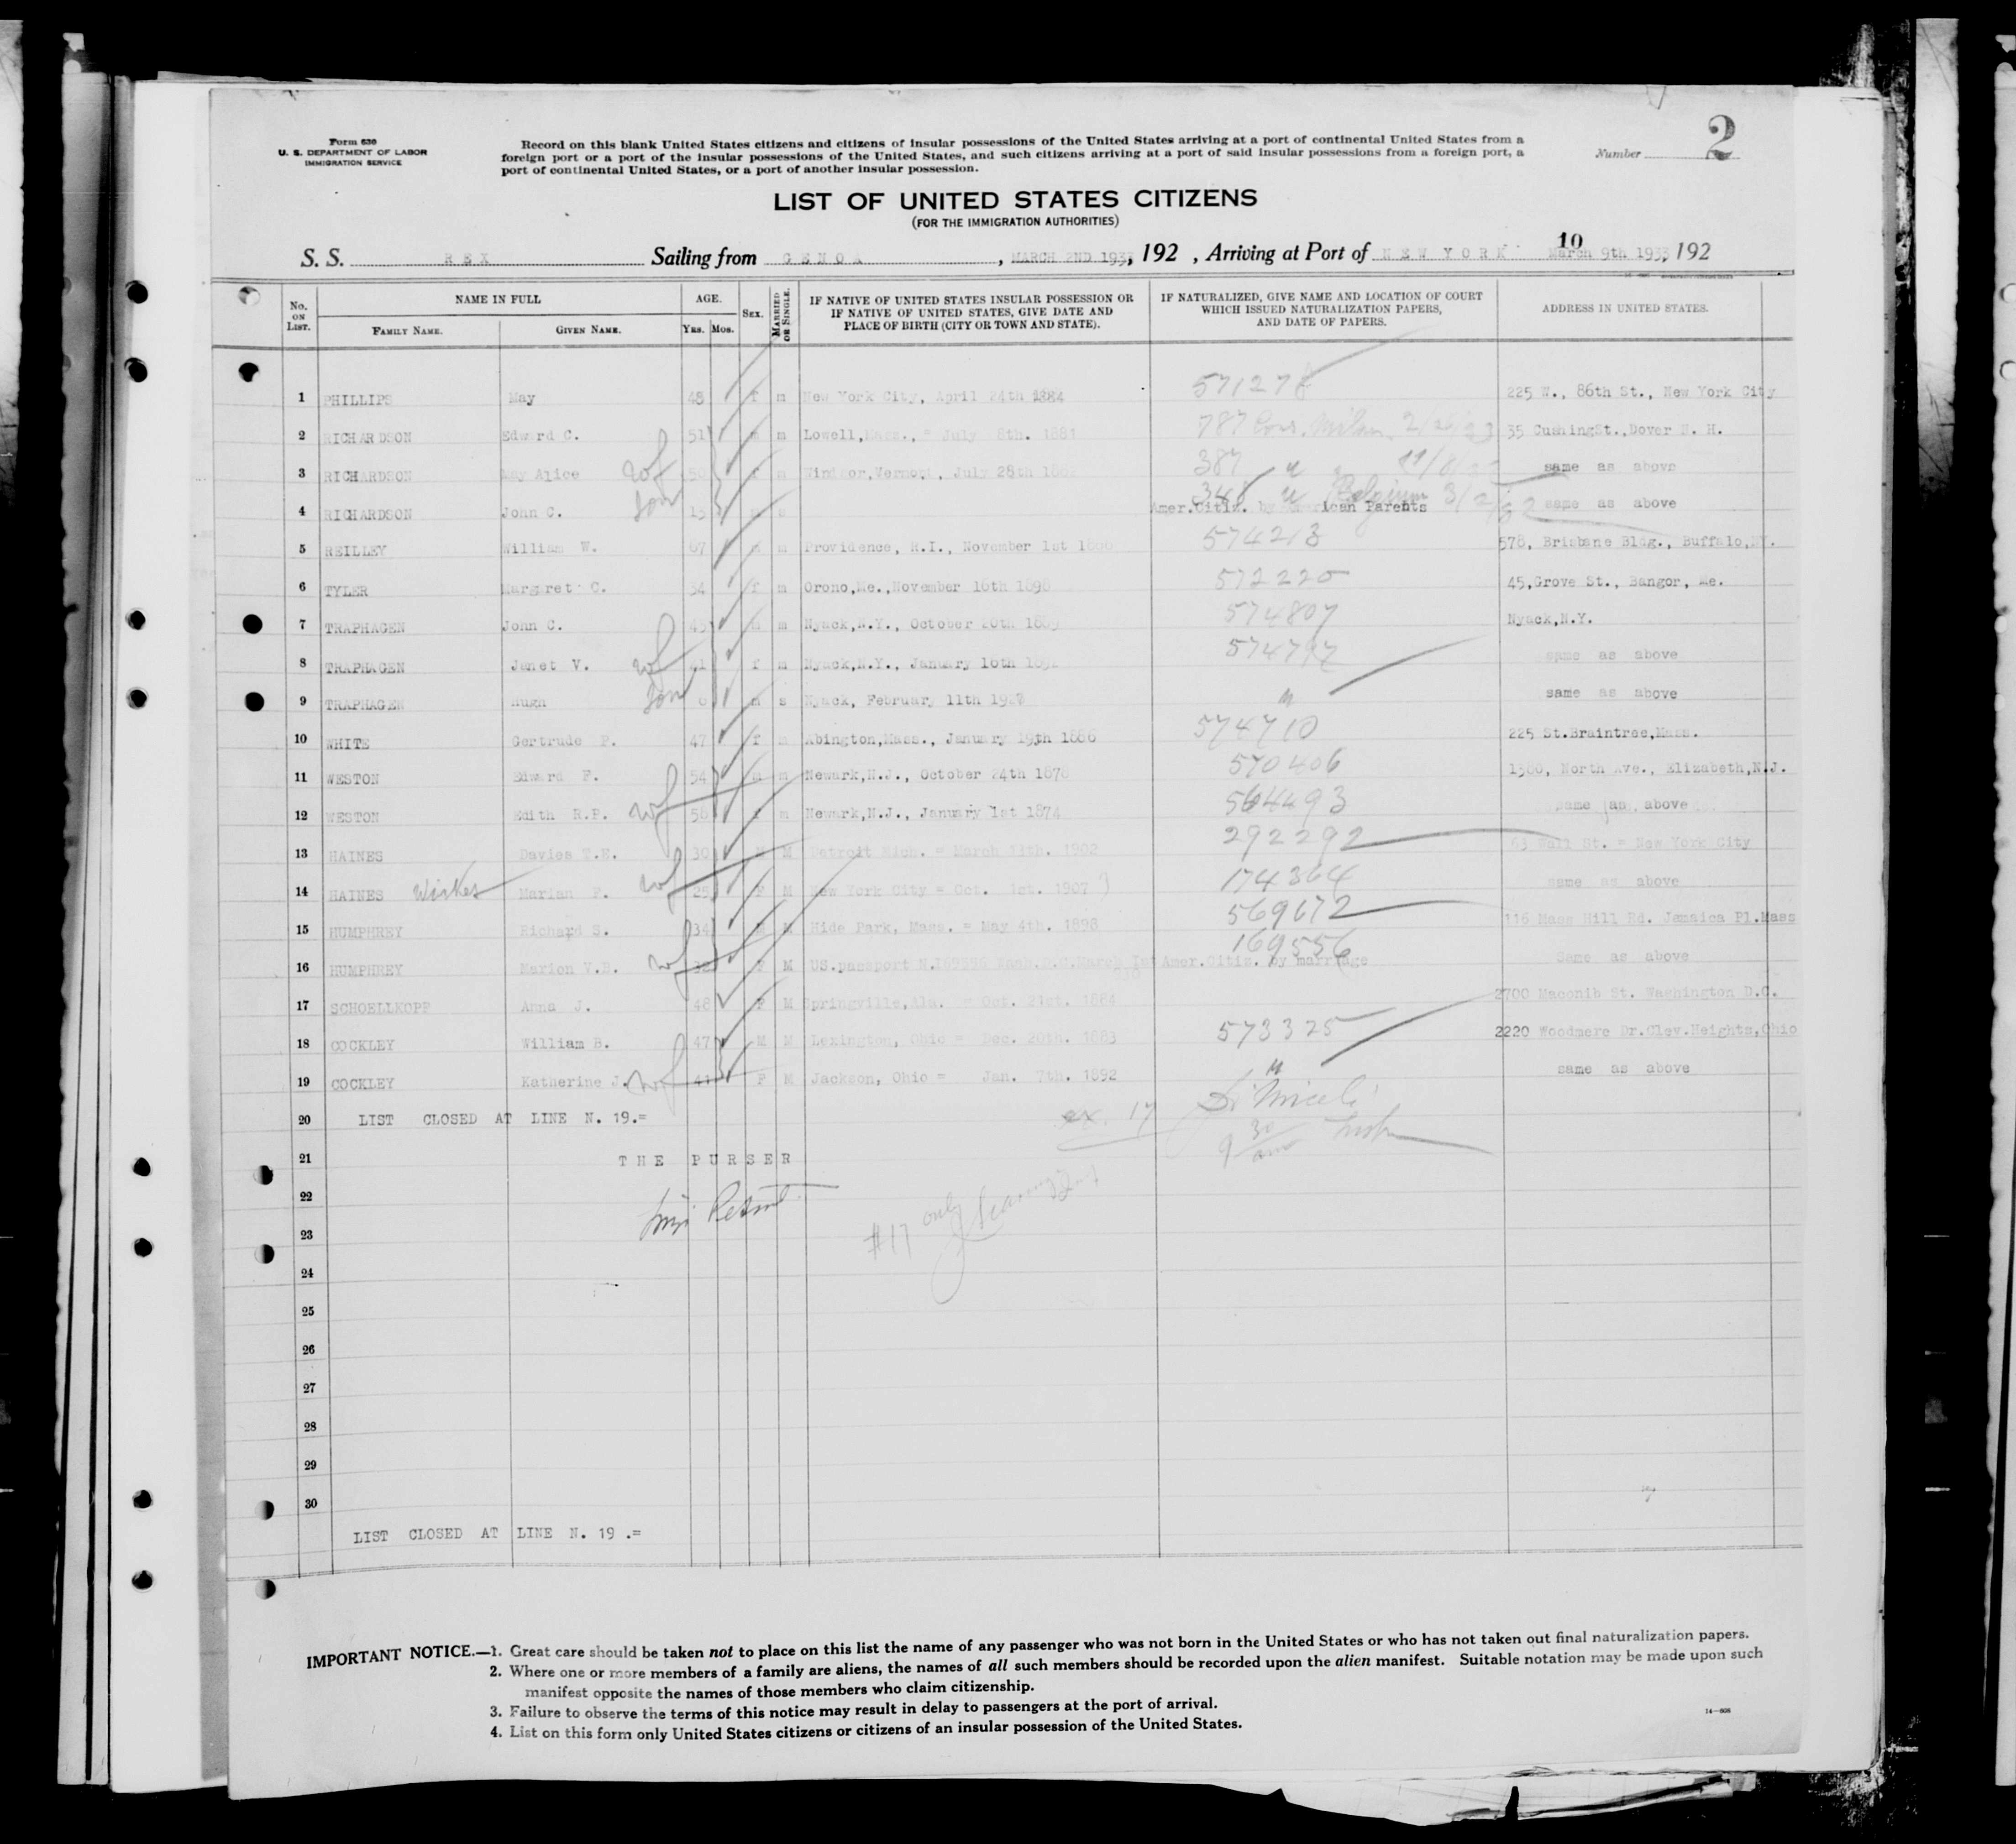 Form 630
U. S. DEPARTMENT OF LABOR
IMMIGRATION SERVICE
Record on this blank United States citizens and citizens of insular possessions of the United States arriving at a port of continental United States from a
foreign port or a port of the insular possessions of the United States, and such citizens arriving at a port of said insular possessions from a foreign port, a
port of continental United States, or a port of another insular possession.
Number 2
LIST OF UNITED STATES CITIZENS
(FOR THE IMMIGRATION AUTHORITIES)
S. S. REX Sailing from GENOA, MARCH 2ND 1933, 192 , Arriving at Port of NEW YORK 10 March 9th 1933, 192
No. ON LIST. NAME IN FULL AGE. SEX. MARRIED OR SINGLE. IF NATIVE OF UNITED STATES INSULAR POSSESSION OR IF NATIVE OF UNITED STATES, GIVE DATE AND PLACE OF BIRTH (CITY OR TOWN AND STATE). IF NATURALIZED, GIVE NAME AND LOCATION OF COURT WHICH ISSUED NATURALIZATION PAPERS, AND DATE OF PAPERS. ADDRESS IN UNITED STATES.
FAMILY NAME. GIVEN NAME. YRS. MOS.
1 PHILLIPS May 48 f m New York City, April 24th 1884 571278 225 W., 86th St., New York City
2 RICHARDSON Edward C. 51 m m Lowell, Mass., = July 8th. 1881 787 Cons. Milan 35 CushingSt.,Dover N. H.
3 RICHARDSON May Alice wf 50 f m Windsor,Vermont, July 28th 387 " same as above
4 RICHARDSON John C. Son 13 m s 348 " Belgium Amer.Citiz. by American Parents same as above
5 REILLEY William W. 67 m m Providence, R.I., November 1st 574213 578, Brisbane Bldg., Buffalo,NY.
6 TYLER Margaret C. 34 f m Orono,Me.,November 16th 1898 572220 45,Grove St., Bangor, Me.
7 TRAPHAGEN John C. 43 m m Nyack,N.Y., October 20th 1889 574807 Nyack,N.Y.
8 TRAPHAGEN Janet V. wf 41 f m Nyack,N.Y., January 10th 574797 same as above
9 TRAPHAGEN Hugh Son 6 m s Nyack, February 11th 1927 " same as above
10 WHITE Gertrude P. 47 f m Abington,Mass., January 19th 1886 574710 225 St.Braintree,Mass.
11 WESTON Edward F. 54 m m Newark,N.J., October 24th 1878 570406 1380, North Ave., Elizabeth,N.J.
12 WESTON Edith R.P. wf 58 f m Newark,N.J., January 1st 1874 564493 same as above
13 HAINES Davies T.E. 30 M M Detroit Mich. = March 11th. 1902 292292 63 Wall St. = New York City
14 HAINES Marian F. wf 25 F M New York City = Oct. 1st. 1907 174364 same as above
15 HUMPHREY Richard S. 34 M M Hide Park, Mass. = May 4th. 1898 569672 116 Mass Hill Rd. Jamaica Pl.Mass
16 HUMPHREY Marion V.B. wf 32 F M US.passport N.169556 Wash.D.C.March 1st Amer.Citiz. by marriage 169556 Same as above
17 SCHOELLKOPF Anna J. 48 F M Springville,Ala. = Oct. 21st. 1884 2700 Maconib St. Washington D.C.
18 COCKLEY William B. 47 M M Lexington, Ohio = Dec. 20th. 1883 573325 2220 Woodmere Dr.Clev.Heights,Ohio
19 COCKLEY Katherine J. wf 41 F M Jackson, Ohio = Jan. 7th. 1892 " same as above
20 LIST CLOSED AT LINE N. 19.= ex. 17
21 THE PURSER 9 30 am
22
23 #17 only
24
25
26
27
28
29
30
LIST CLOSED AT LINE N. 19 .=
IMPORTANT NOTICE.—1. Great care should be taken not to place on this list the name of any passenger who was not born in the United States or who has not taken out final naturalization papers.
2. Where one or more members of a family are aliens, the names of all such members should be recorded upon the alien manifest. Suitable notation may be made upon such
manifest opposite the names of those members who claim citizenship.
3. Failure to observe the terms of this notice may result in delay to passengers at the port of arrival.
4. List on this form only United States citizens or citizens of an insular possession of the United States.
14—808